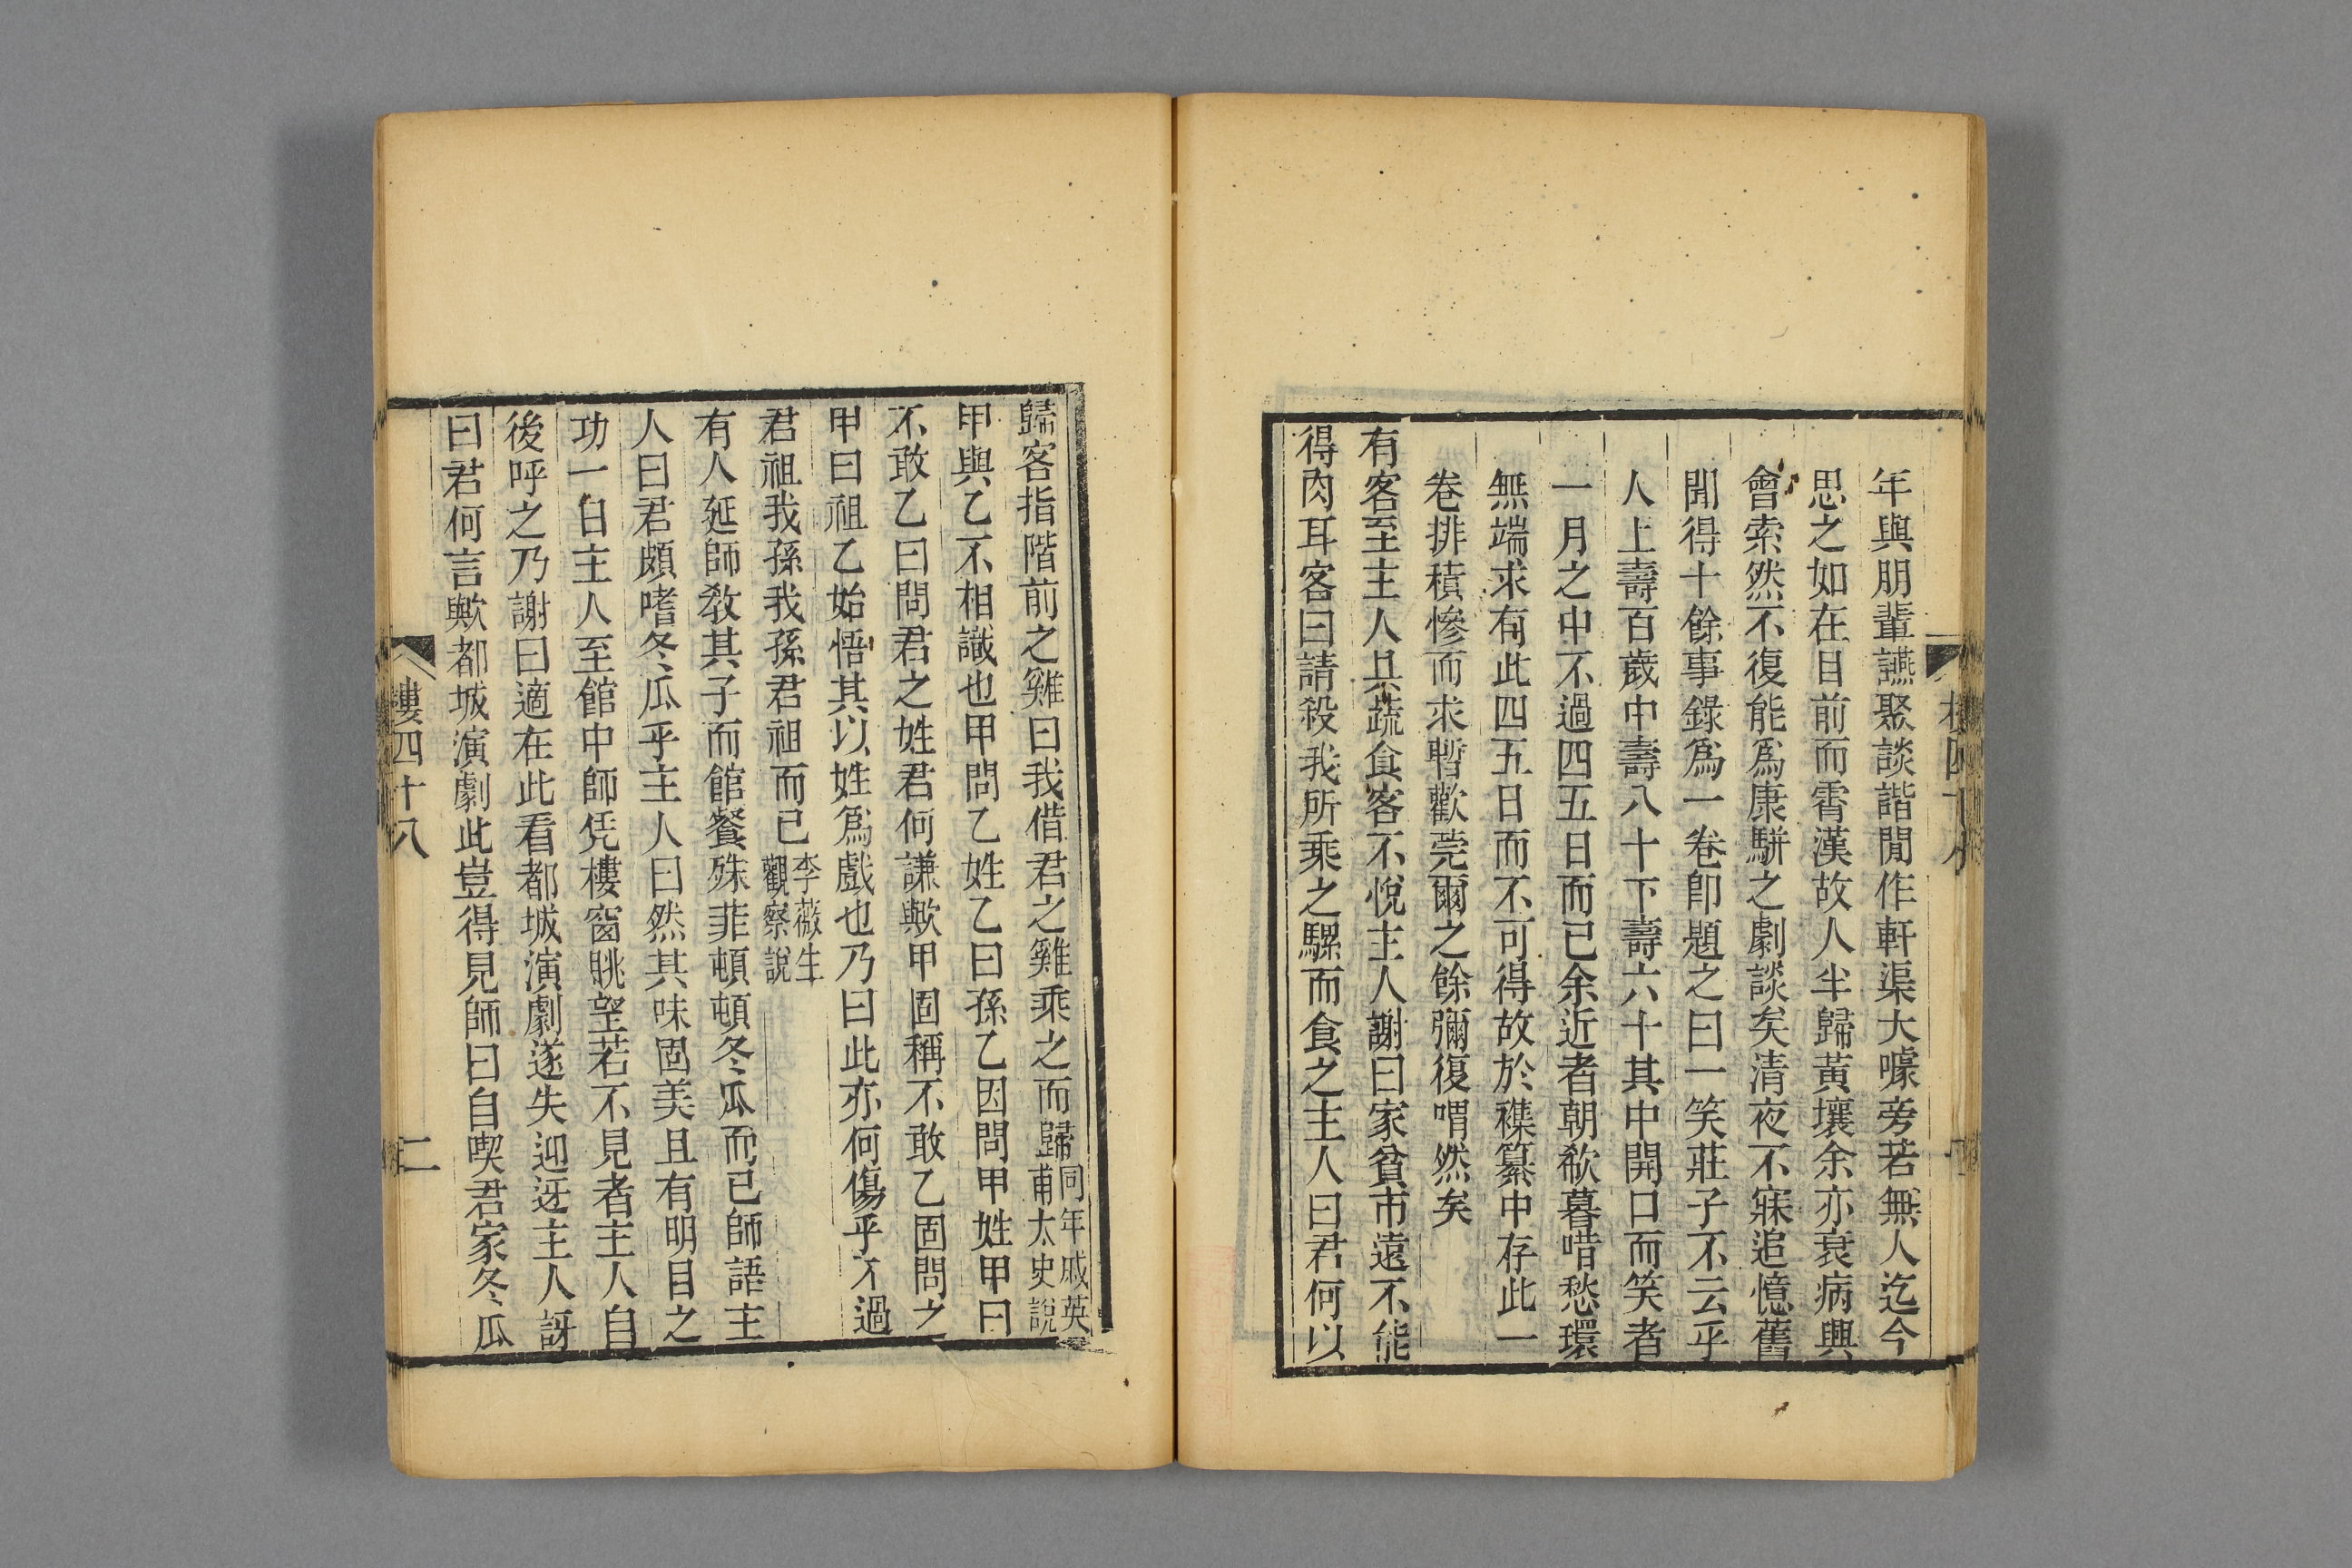 年與朋輩讌聚談諧閒作軒渠大噱旁若無人迄今
思之如在目前而霄漢故人半歸黃壤余亦衰病興
會索然不復能爲康駢之劇談矣清夜不寐追憶舊
聞得十餘事錄爲一卷卽題之曰一笑莊子不云乎
人上壽百歲中壽八十下壽六十其中開口而笑者
一月之中不過四五日而已余近者朝欷暮唶愁環
無端求有此四五日而不可得故於襍纂中存此一
卷排積慘而求暫歡莞爾之餘彌復喟然矣
有客至主人具蔬食客不悅主人謝曰家貧市遠不能
得肉耳客曰請殺我所乘之騾而食之主人曰君何以
歸客指階前之雞曰我借君之雞乘之而歸同年戚英甫太史說
甲與乙不相識也甲問乙姓乙曰孫乙因問甲姓甲曰
不敢乙曰問君之姓君何謙歟甲固稱不敢乙固問之
甲曰祖乙始悟其以姓爲戲也乃曰此亦何傷乎不過
君祖我孫我孫君祖而已李薇生觀察說
有人延師敎其子而館餐殊菲頓頓冬瓜而已師語主
人曰君頗嗜冬瓜乎主人曰然其味固美且有明目之
功一日主人至館中師凭樓窗眺望若不見者主人自
後呼之乃謝曰適在此看都城演劇遂失迎迓主人訝
曰君何言歟都城演劇此豈得見師曰自喫君家冬瓜
樓四十八
二